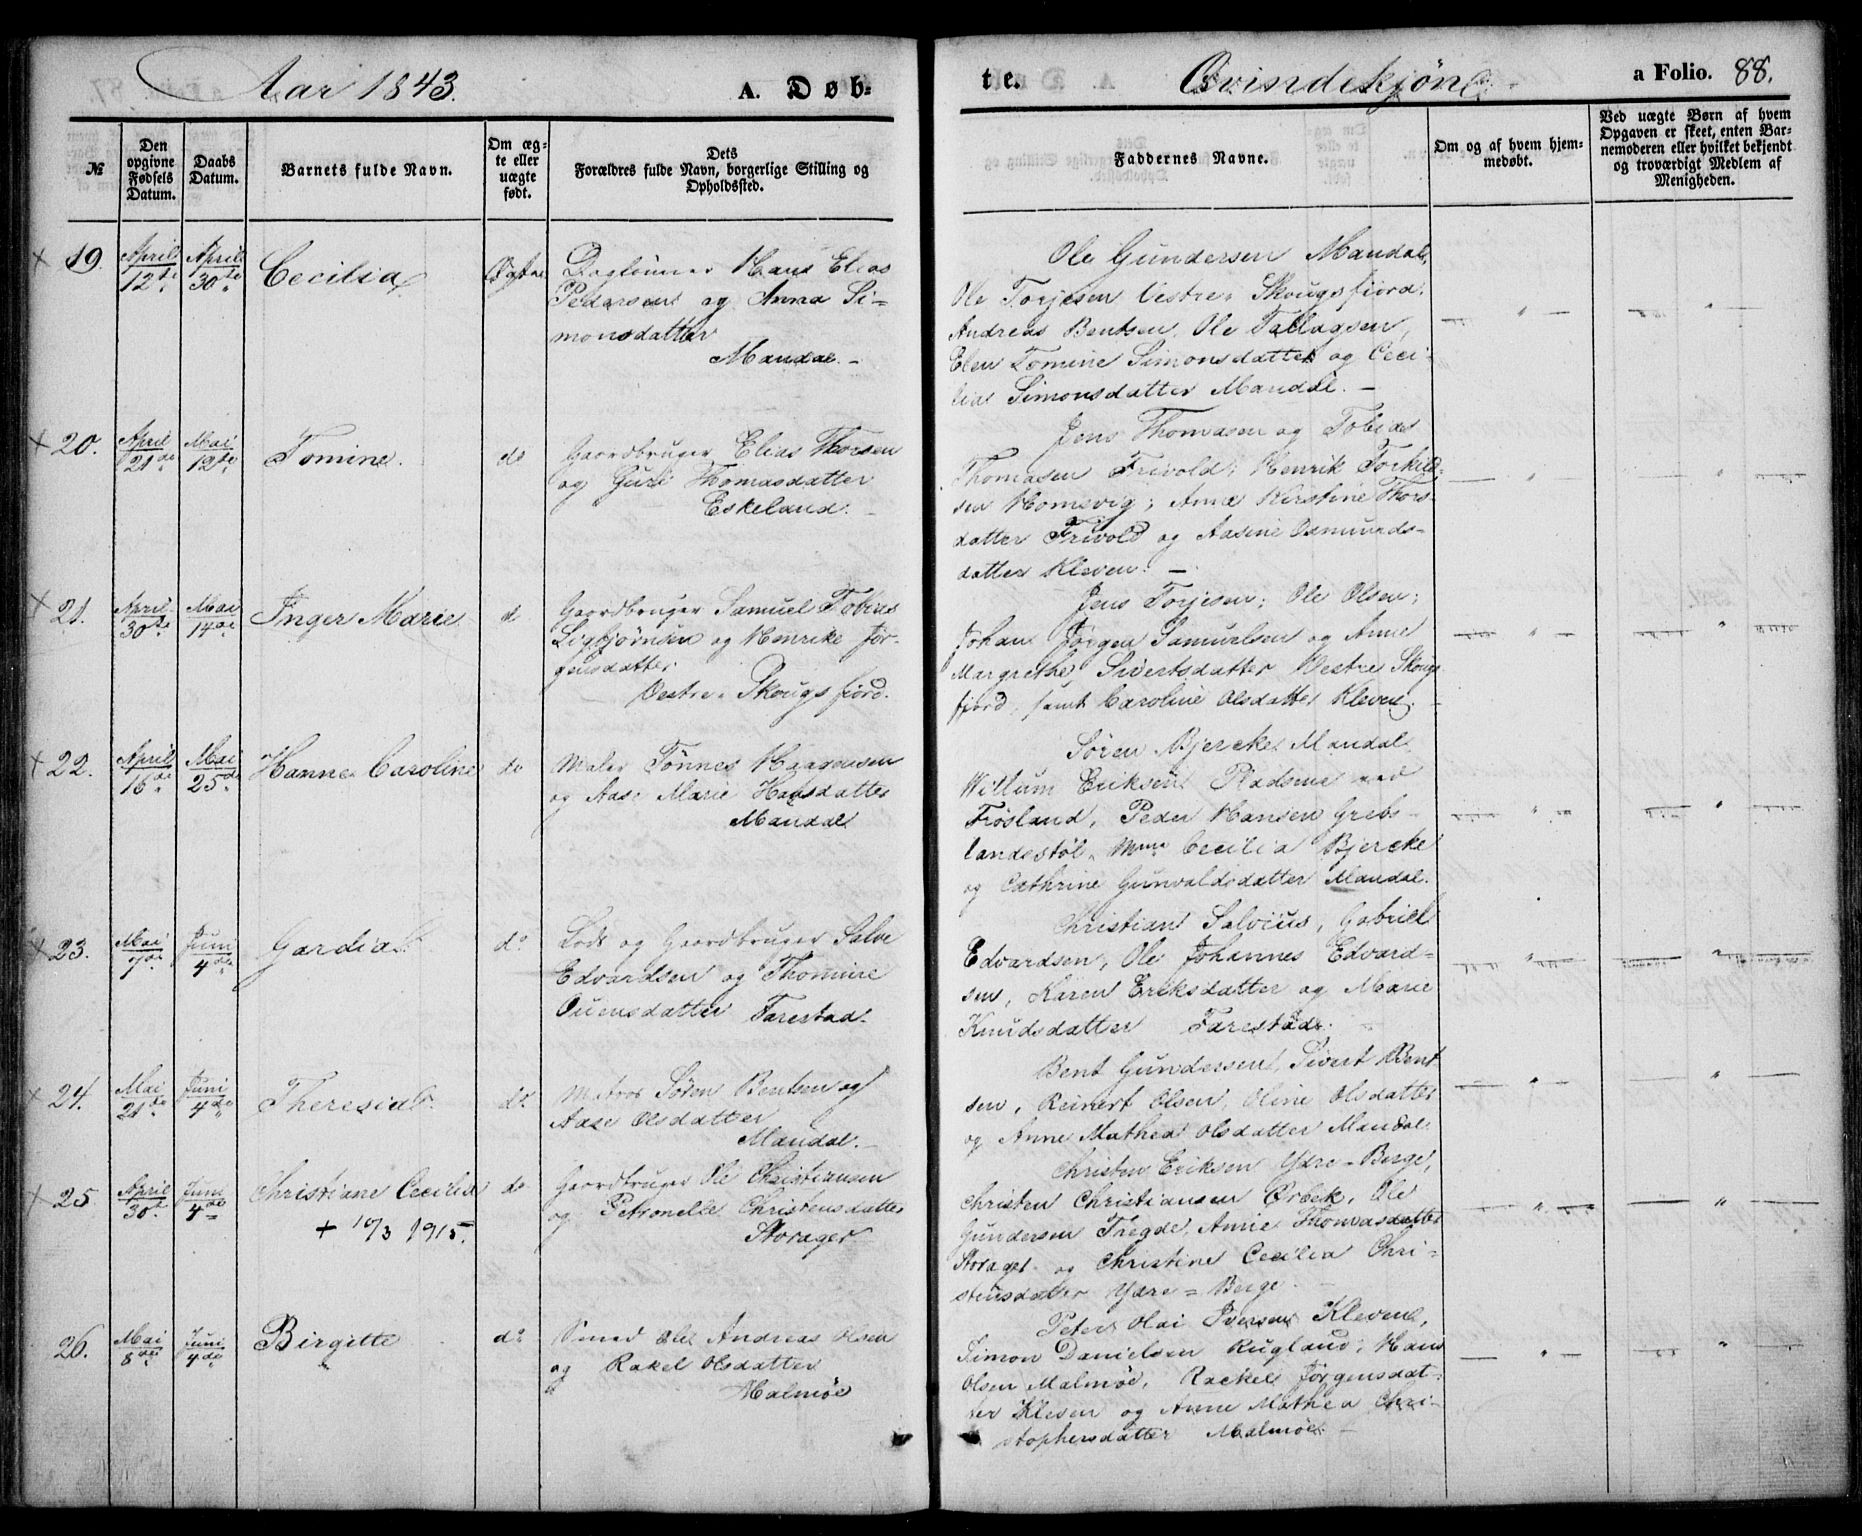 Aar 1843. A. Døb-
te. Qvindekjøn a Folio. 88.
№
Den opgivne Fødsels Datum.
Daabs Datum.
Barnets fulde Navn.
Om ægte eller uægte født.
Dets Forældres fulde Navn, borgerlige Stilling og Opholdssted.
Faddernes Navne.
Om og af hvem hjemmedøbt.
Ved uægte Børn af hvem Opgaven er skeet, enten Barnemoderen eller hvilket bekjendt og troværdigt Medlem af Menigheden.
19. April 12te April 30te Cecilia Ægte
Daglønner Hans Elias
Pedersen og Anna Si-
monsdatter
Mandal.
Ole Gundersen Mandal,
Ole Torjesen Vestre Skougsfjord.
Andreas Bentsen, Ole Tallagsen,
Elen Tomine Simonsdatter og Ceci-
lia Simonsdatter Mandal.
20. April 21de Mai 12te Tomine do
Gaardbruger Elias Thorsen
og Guri Thomasdatter
Eskeland.
Jens Thomasen og Tobias
Thomasen Frivold, Henrik Torkild-
sen Homsvig; Anne Kirstine Thors-
datter Frivold og Aasine Osmunds-
datter Kleven.
21. April 30te Mai 14de Inger Marie d
Gaardbruger Samuel Tobias
Sigbjørnsen og Henrike Jør-
gensdatter
Vestre Skougsfjord.
Jens Torjesen; Ole Olsen;
Johan Jørgen Samuelsen og Anne
Margrethe Sivertsdatter Vestre Skougs
fjord, samt Caroline Olsdatter Kleven.
22. April 16de Mai 25de Hanne Caroline do
Maler Tønnes Haagensen
og Aase Marie Hansdatter
Mandal
Søren Bjercke Mandal
Willum Eriksen Pladsen ved
Frøsland, Peder Hansen Grebs-
landestøl, Mme Cecilia Bjercke
og Cathrine Gunvaldsdatter Mandal.
23. Mai 7de Juni 4de Gardia do
Lods og Gaardbruger Salve
Edvardsen og Thomine
Ouensdatter Farestad.
Christian Salvius, Gabriel
Edvardsen, Ole Johannes Edvard-
sen, Karen Eriksdatter og Marie
Knudsdatter Farestad.
24. Mai 21de Juni 4de Theresia do
Matros Søren Bentsen og
Aase Olsdatter
Mandal.
Bent Gundersen, Sivert Bent
sen, Reinert Olsen, Oline Olsdatter
og Anne Mathea Olsdatter Mandal.
25. April 30te Juni 4de Christiane Cecilia do
+ 10/3 1915.
Gaardbruger Ole Christiansen
og Petronelle Christensdatter
Storager
Christen Eriksen Ydre-Berge,
Christen Christiansen Ørbek, Ole
Gundersen Tregde, Annie Thomasdatter
Storager og Christine Cecilia Chri-
stensdatter Ydre-Berge.
26. Mai 8de Juni 4de Birgitte do
Smed Ole Andreas Olsen
og Rakel Olsdatter
Malmøe
Peter Olai Iversen Kleven,
Simon Danielsen Rugland, Hans
Olsen Malmøe, Rackel Jørgensdat-
ter Kleven og Anne Mathea Chri-
stophersdatter Malmøe.